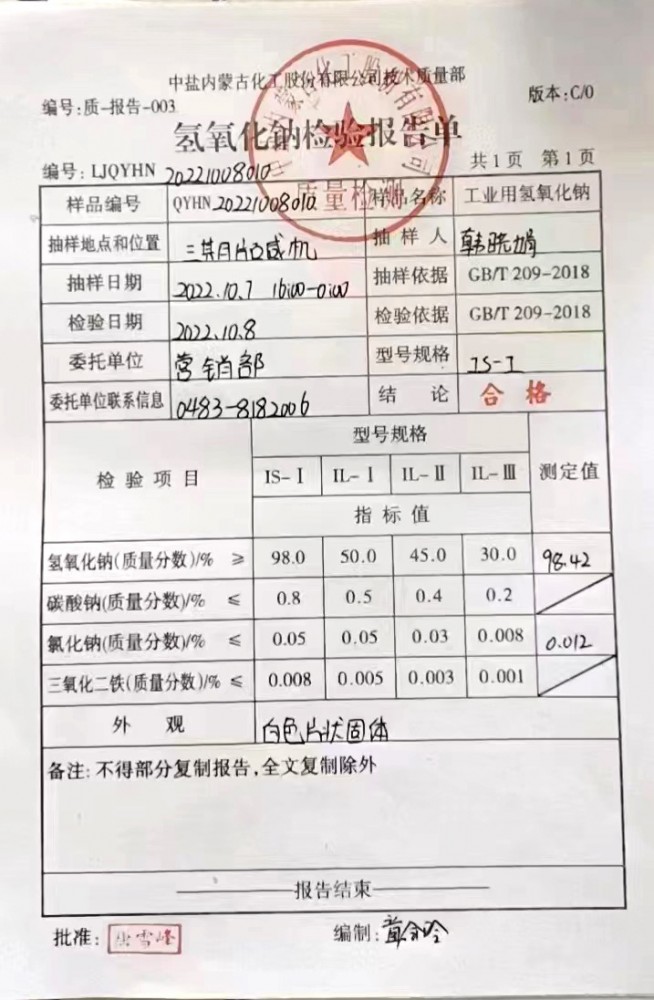 中盐内蒙古化工股份有限公司技术质量部
编号:质-报告-003 版本:C/0
氢氧化钠检验报告单
编号: LJQYHN 20221008010 共1页 第1页
样品编号 QYHN 20221008010 样品名称 工业用氢氧化钠
抽样地点和位置 抽样人 韩晓娟
抽样日期 2022.10.7 16:00-0:00 抽样依据 GB/T 209-2018
检验日期 2022.10.8 检验依据 GB/T 209-2018
委托单位 营销部 型号规格 IS-I
委托单位联系信息 0483-8182006 结 论 合格
检验项目 型号规格 测定值
IS-Ⅰ IL-Ⅰ IL-Ⅱ IL-Ⅲ
指标值
氢氧化钠(质量分数)/% ≥ 98.0 50.0 45.0 30.0 98.42
碳酸钠(质量分数)/% ≤ 0.8 0.5 0.4 0.2
氯化钠(质量分数)/% ≤ 0.05 0.05 0.03 0.008 0.012
三氧化二铁(质量分数)/% ≤ 0.008 0.005 0.003 0.001
外 观 白色片状固体
备注: 不得部分复制报告,全文复制除外
报告结束
批准: 唐雪峰 编制:
质量检测